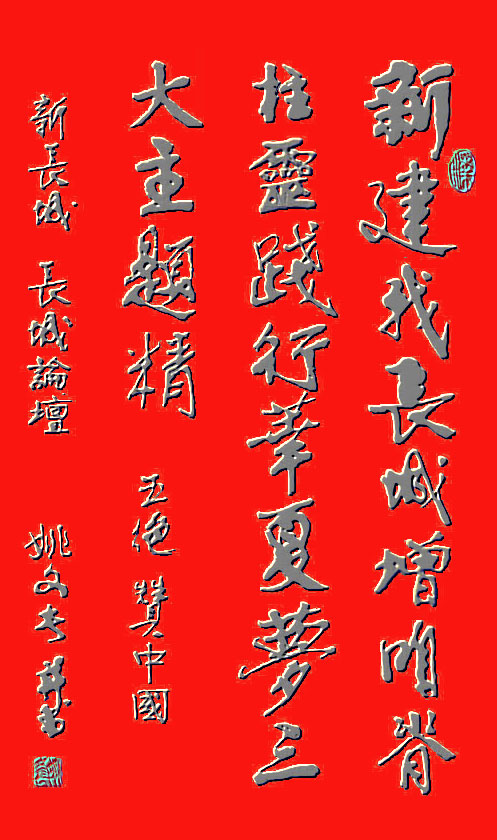 新建我長城增咱脊
柱靈踐行華夏夢三
大主題精 五絕 贊中國
新長城 長城論壇 姚文 并書